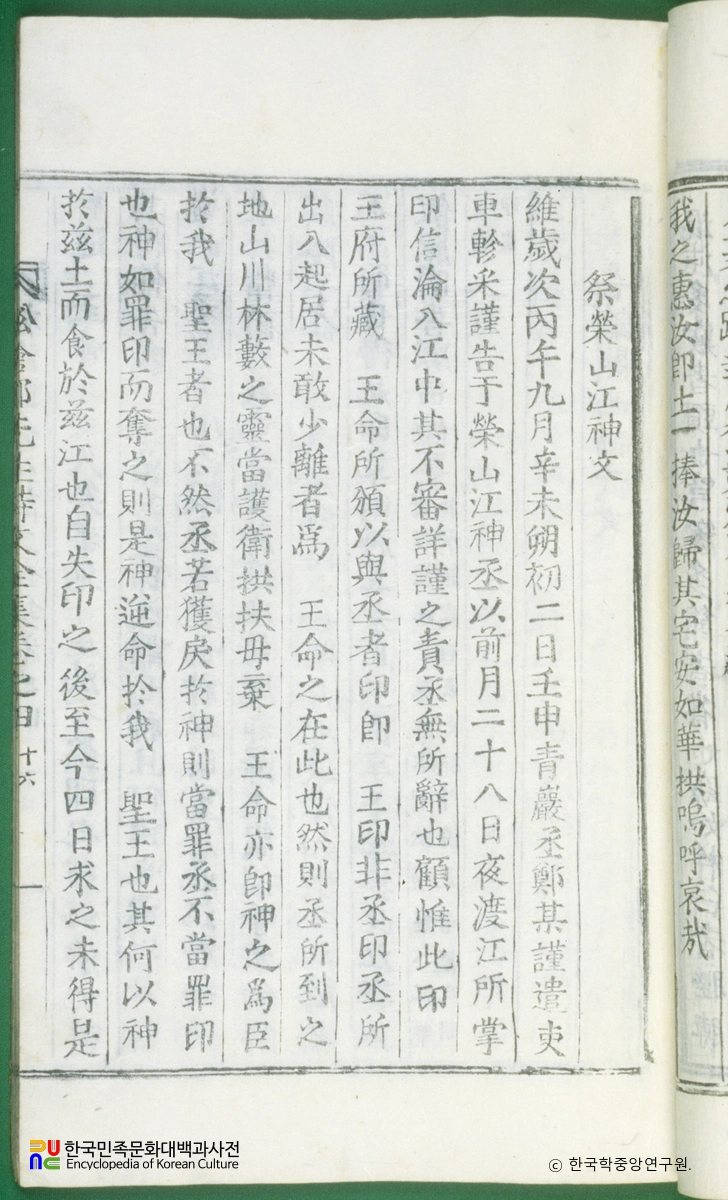 我之惠汝卽土一捧汝歸其宅安如華拱嗚呼哀哉
祭榮山江神文
維歲次丙午九月辛未朔初二日壬申青巖丞鄭某謹遣吏
車軫釆謹告于榮山江神丞以前月二十八日夜渡江所掌
印信淪入江中其不審詳謹之責丞無所辭也顧惟此印
王府所藏 王命所頒以與丞者印卽 王印非丞印丞所
出入起居未敢少離者爲 王命之在此也然則丞所到之
地山川林藪之靈當護衛拱扶毋棄 王命亦卽神之爲臣
於我 聖王者也不然丞若獲戾於神則當罪丞不當罪印
也神如罪印而奪之則是神逆命於我 聖王也其何以神
於茲土而食於茲江也自失印之後至今四日求之未得是
先生詩文全集卷之四 十六
한국민족문화대백과사전
Encyclopedia of Korean Culture
ⓒ 한국학중앙연구원.